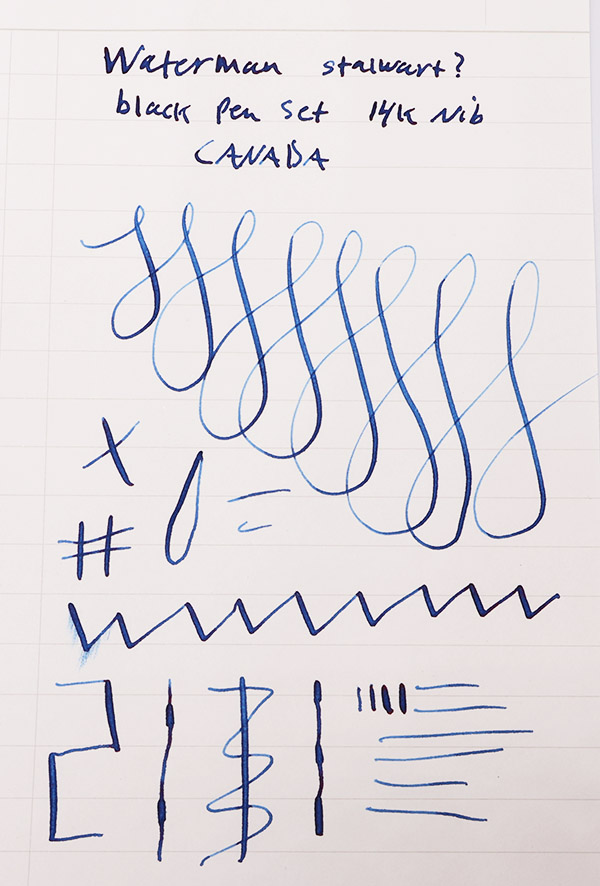 Waterman stalwart?
black pen set 14K Nib
CANADA
X
#